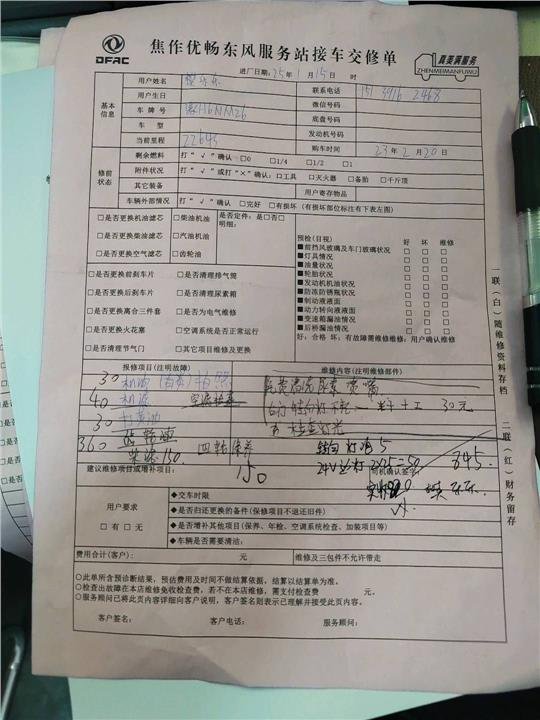 DFAC
焦作优畅东风服务站接车交修单
真美满服务
ZHENMEIMANFUWU
进厂日期：25年1月15日 时
基本信息
用户姓名
联系电话 151 3916 2468
用户生日
微信号码
车牌号 豫H6NM26
底盘号码
车型
发动机号码
当前里程 22645
购车时间 23年2月20日
修前状态
剩余燃料 打"√"确认 □0 □1/4 □1/2 □1
附件状况 打"√"或打"×"确认：□工具 □灭火器 □备胎 □千斤顶
其它装备
用户寄存物品
车辆外部情况 打"√"确认 □完好 □有损坏（有损坏部位标注有下表左图）
□是否更换机油滤芯 □柴油机油
□是否更换柴油滤芯 □汽油机油
□是否更换空气滤芯 □齿轮油
是否定件：是□否□
明细：
□是否更换前刹车片 □是否清理排气筒
□是否更换后刹车片 □是否清理尿素箱
□是否更换离合三件套 □是否为电气维修
□是否更换火花塞 □空调系统是否正常运行
□是否清理节气门 □其它项目维修及更换
预检(目视) 好 坏 维修
■前挡风玻璃及车门玻璃状况 □ □ □
■灯具情况 □ □ □
■油量状况 □ □ □
■轮胎状况 □ □ □
■发动机机油状况 □ □ □
■防冻防锈瓶状况 □ □ □
■制动液液面 □ □ □
■动力转向液液面 □ □ □
■变速箱漏油情况 □ □ □
■后桥漏油情况 □ □ □
好：合格 坏：有故障需维修维修：用户确认维修
报修项目(注明故障)
维修内容(注明维修部件)
30 机油
40 机滤
30 打黄油
360 四轮保养
柴滤150
150
30元
转向灯泡 5
24V 2×25=50
845
建议维修项目或增补项目：
司机确认签字
用户要求
□有 □无
◆交车时限
◆是否归还更换的备件(保修项目不退还旧件)
◆是否增补其他项目(保养、年检、空调系统检查、加装项目等)
◆车辆是否需要清洁：
费用合计(客户)： 元
维修及三包件不允许带走
○此单所含预诊断结果，预估费用及时间不做结算依据，结算以结算单为准。
○检查出故障在本店维修免收检查费，若不在本店维修，需支付检查费 元。
○服务顾问已将此页内容详细向客户说明，客户签名则表示已理解并接受此页内容。
客户签名： 客户电话： 服务顾问：
一联（白）随维修资料存档
二联（红）财务留存